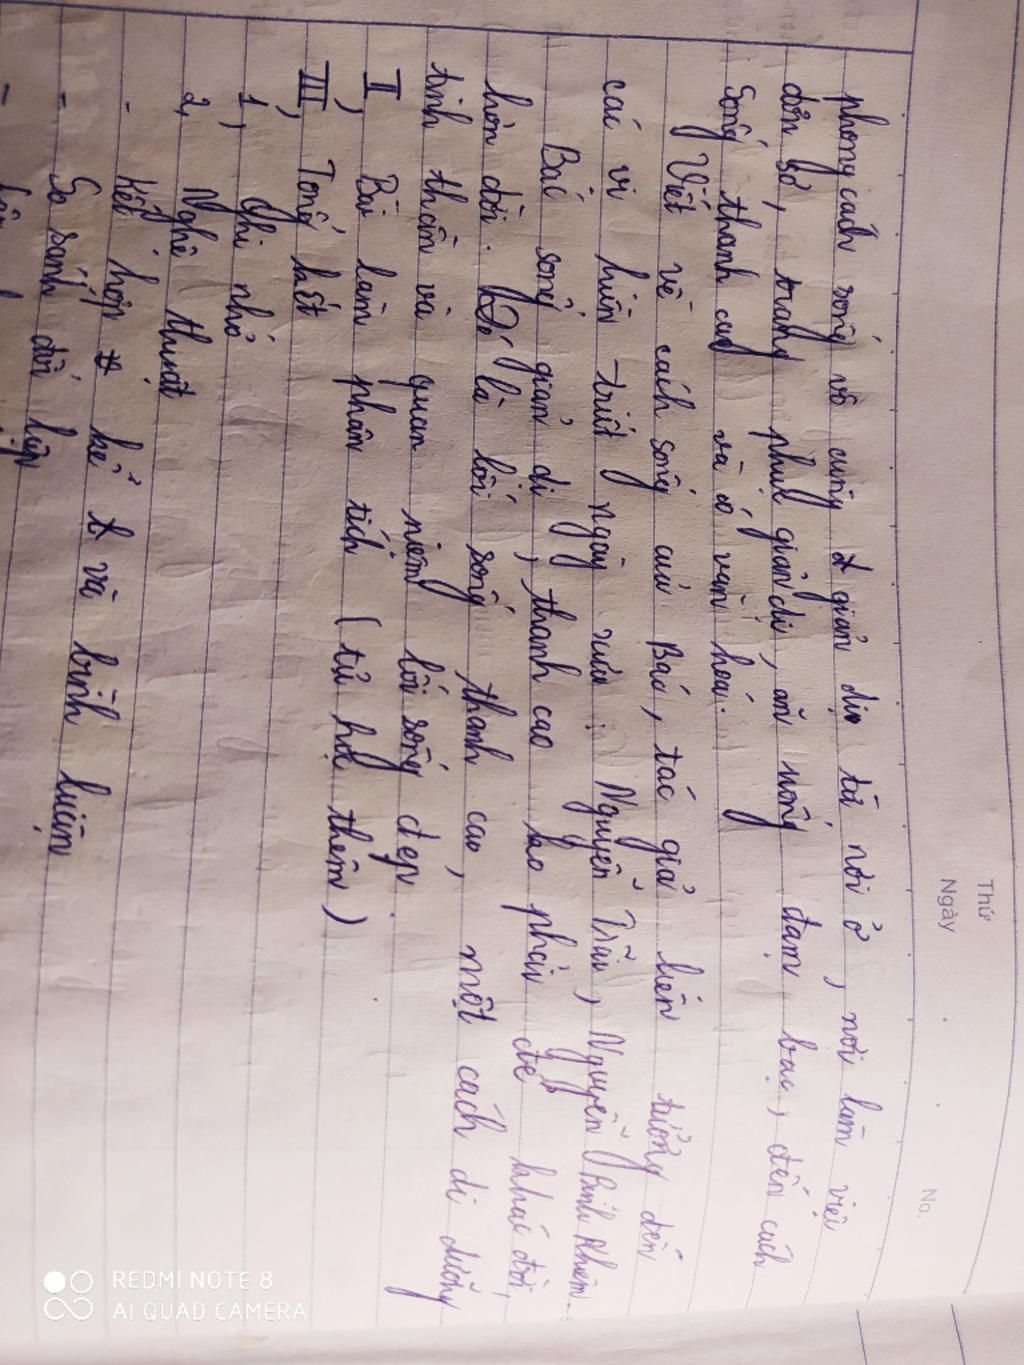 Thứ
Ngày
No.
phong cách sống vô cùng giản dị: từ nơi ở, nơi làm việc
đơn sơ, trang phục giản dị, ăn uống đạm bạc, đến cách
sống thanh cao và có văn hoá.
Viết về cách sống của Bác, tác giả liên tưởng đến
các vị hiền triết ngày xưa: Nguyễn Trãi, Nguyễn Bỉnh Khiêm.
Bác sống giản dị, thanh cao ko phải để khác đời,
hơn đời. Đó là lối sống thanh cao, một cách di dưỡng
tinh thần và quan niệm lối sống đẹp.
II, Bài làm phân tích (tự học thêm)
III, Tổng kết
1, Ghi nhớ
2, Nghệ thuật
- Kết hợp kể và bình luận
- So sánh đối lập